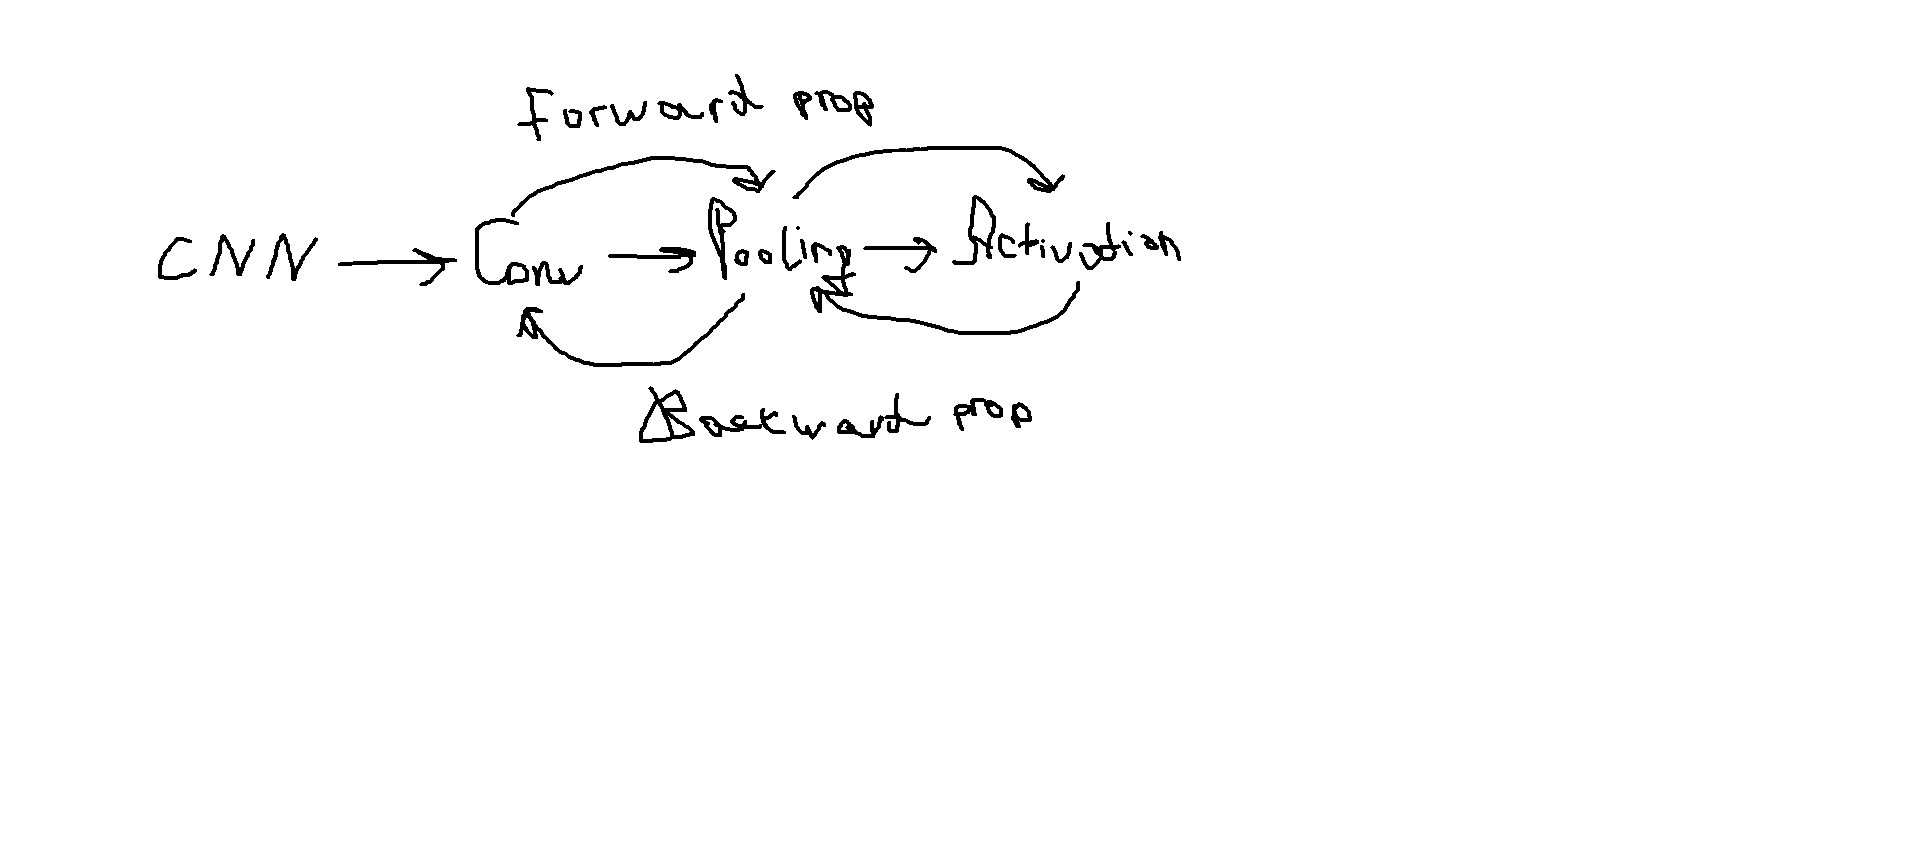 Forward prop
CNN → Conv → Pooling → Activation
Backward prop